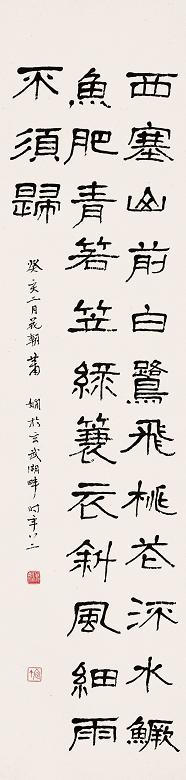 西塞山前白鷺飛桃花流水鱖
魚肥青箬笠綠蓑衣斜風細雨
不須歸
癸亥二月花朝蕭嫻於玄武湖畔時年八二